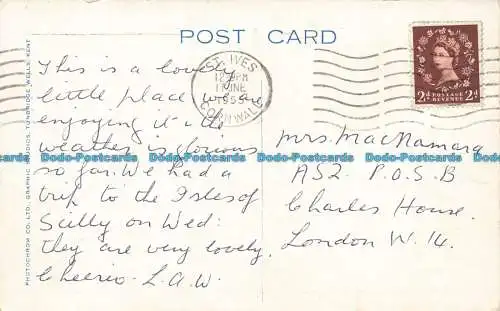 POST CARD
ST. IVES
12 15 PM
JNE
1955
CORNWALL
2D POSTAGE REVENUE 2D
This is a lovely
little place we are
enjoying it & the
weather is glorious
so far. We had a
trip to the Isles of
Scilly on Wed:
they are very lovely
Cheerio. L.A.W.
Mrs. MacNamara
AS2 P.O.S.B
Charles House.
London W.14.
PHOTOCHROM CO. LTD., GRAPHIC STUDIOS, TUNBRIDGE WELLS, KENT
Dodo-Postcards Dodo-Postcards Dodo-Postcards Dodo-Postcards
Dodo-Postcards Dodo-Postcards Dodo-Postcards Dodo-Postcards